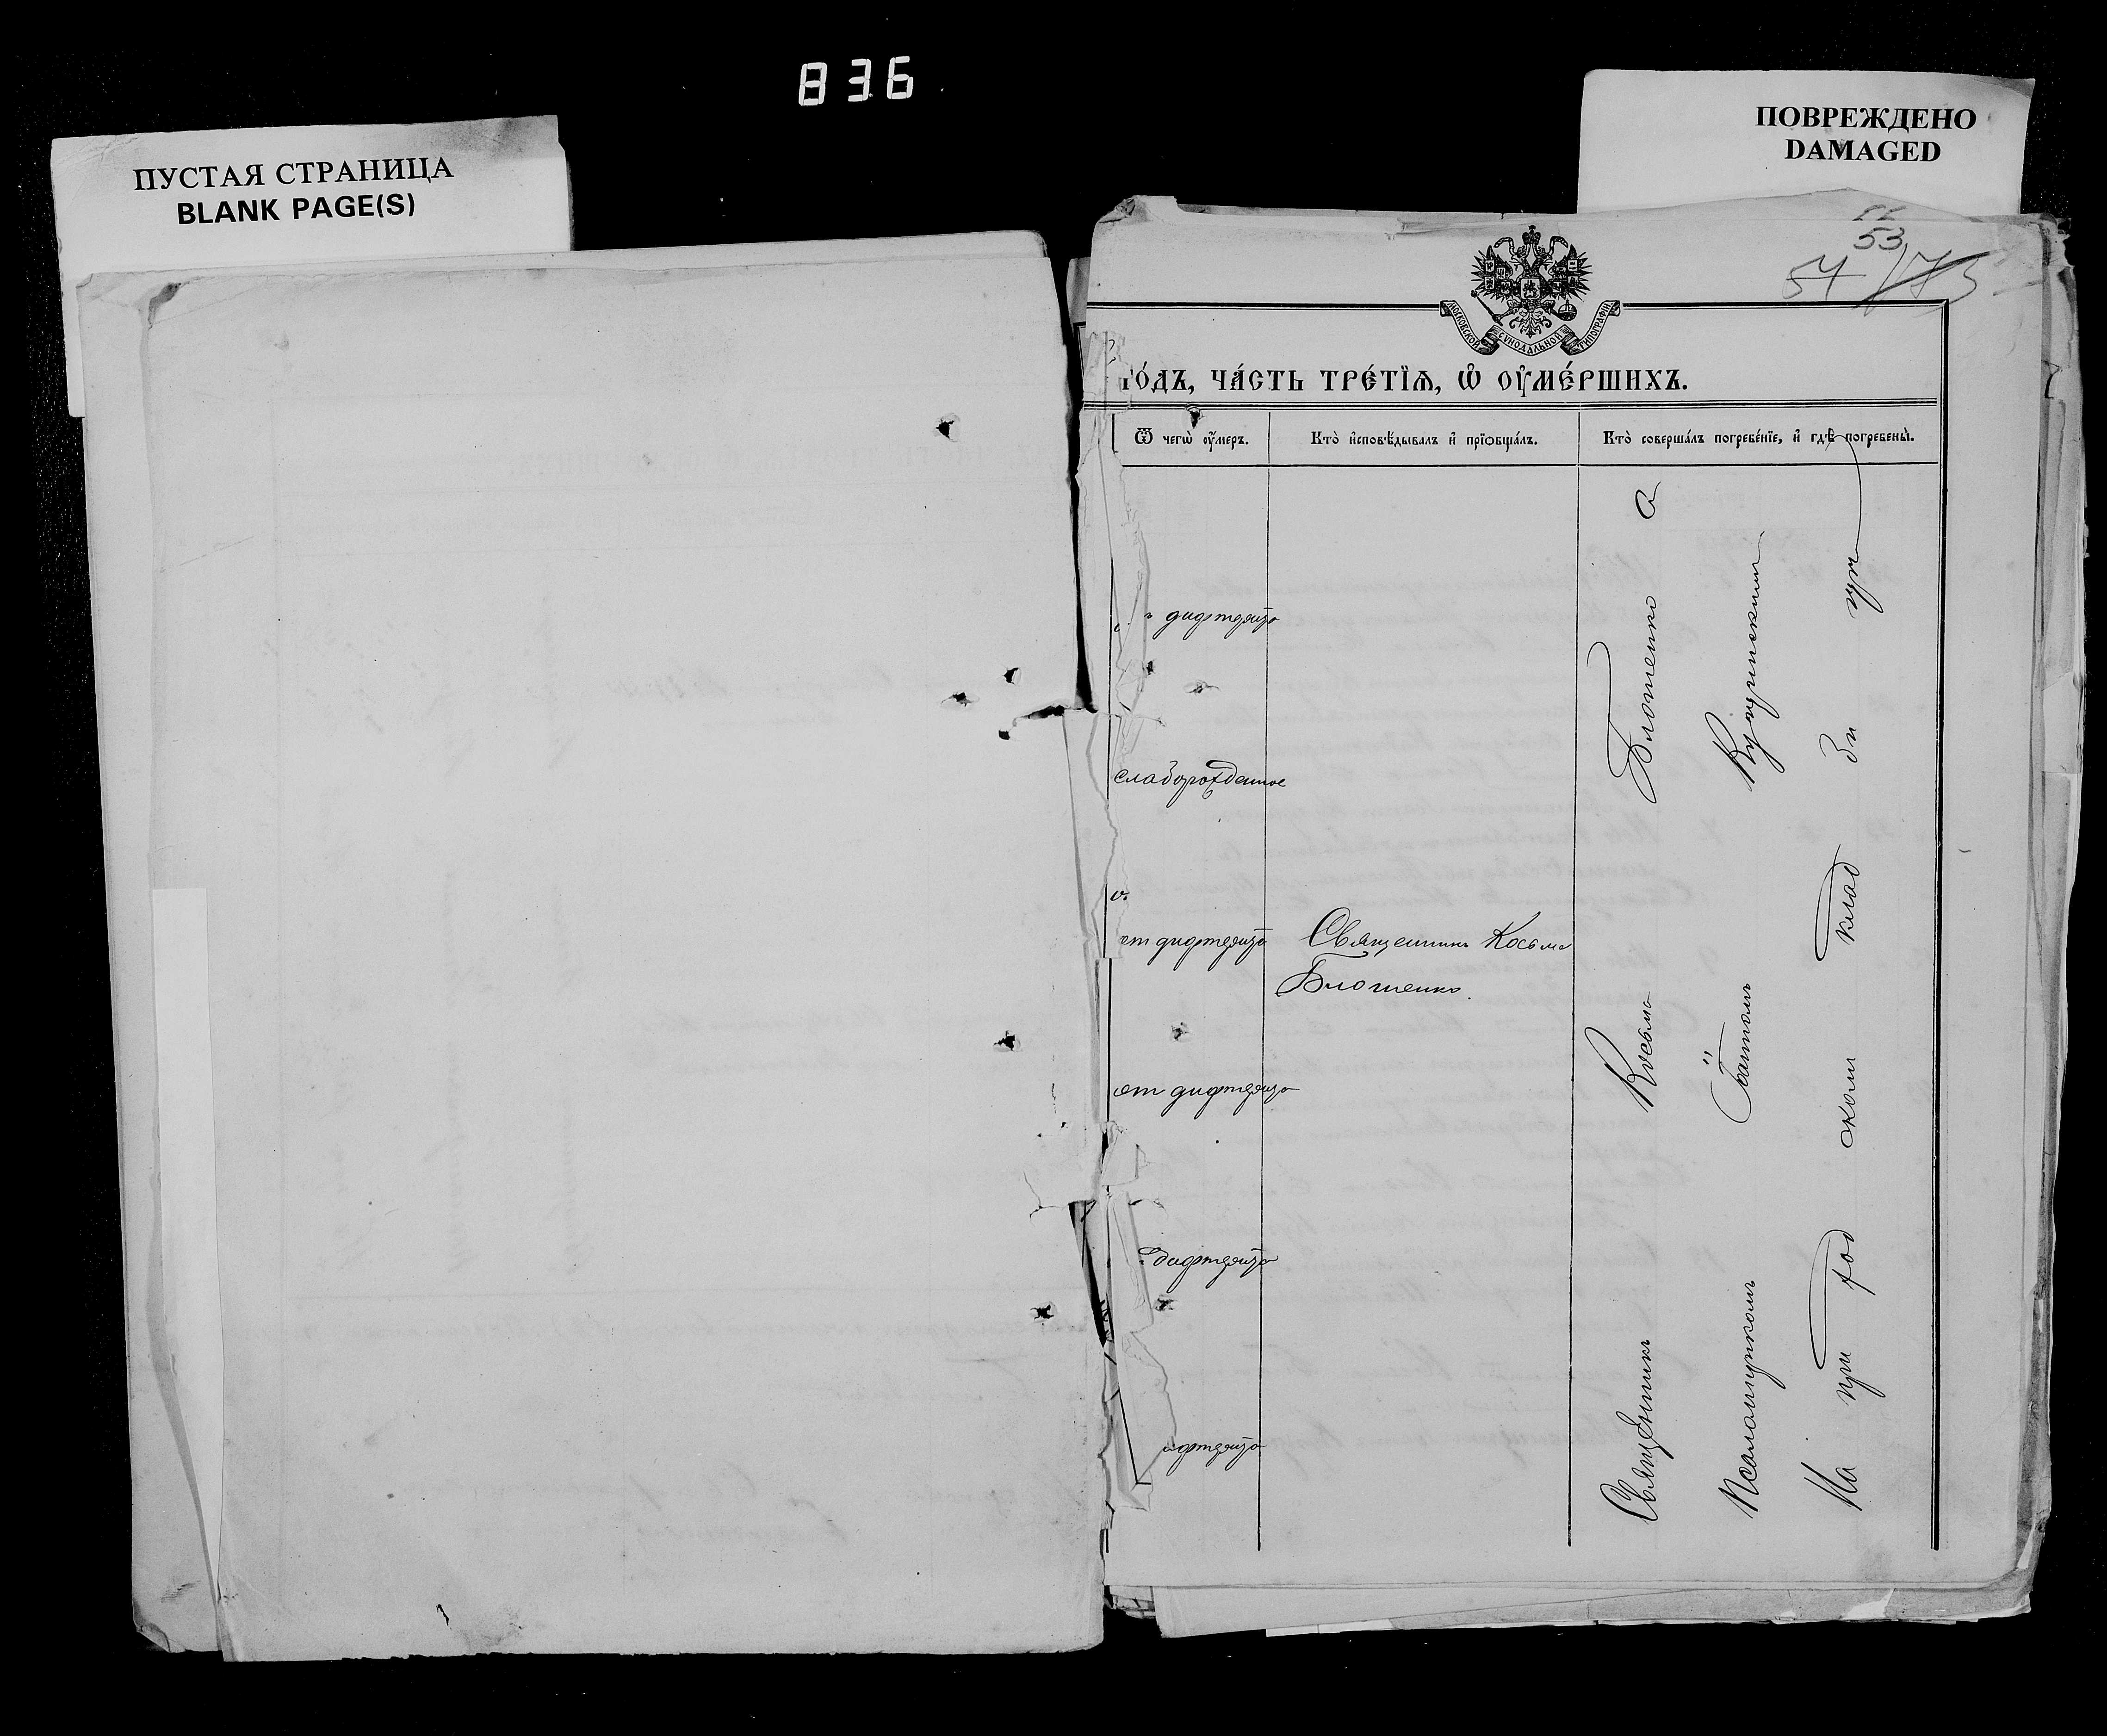 836
ПУСТАЯ СТРАНИЦА
BLANK PAGE(S)
ПОВРЕЖДЕНО
DAMAGED
53
54
МОСКОВСКОЙ СѴНОДАЛЬНОЙ ТИПОГРАФІИ
го́дъ, ча́сть тре́тїѧ, ѡ҆ ᲂу҆ме́ршихъ.
Ѿ чегѡ̀ ᲂу҆́меръ.
Кто̀ и҆сповѣ́дывалъ и҆ прїѻбща́лъ.
Кто̀ соверша́лъ погребе́нїе, и҆ гдѣ̀ погребены̀.
дифтерита
слаборожденное
от дифтерита
Священникъ Косьма
Блошенко.
от дифтерита
дифтерита
ифтерита
Священникъ Косьма Блошенко с
Псаломщикомъ
На при ход ском клад би щѣ